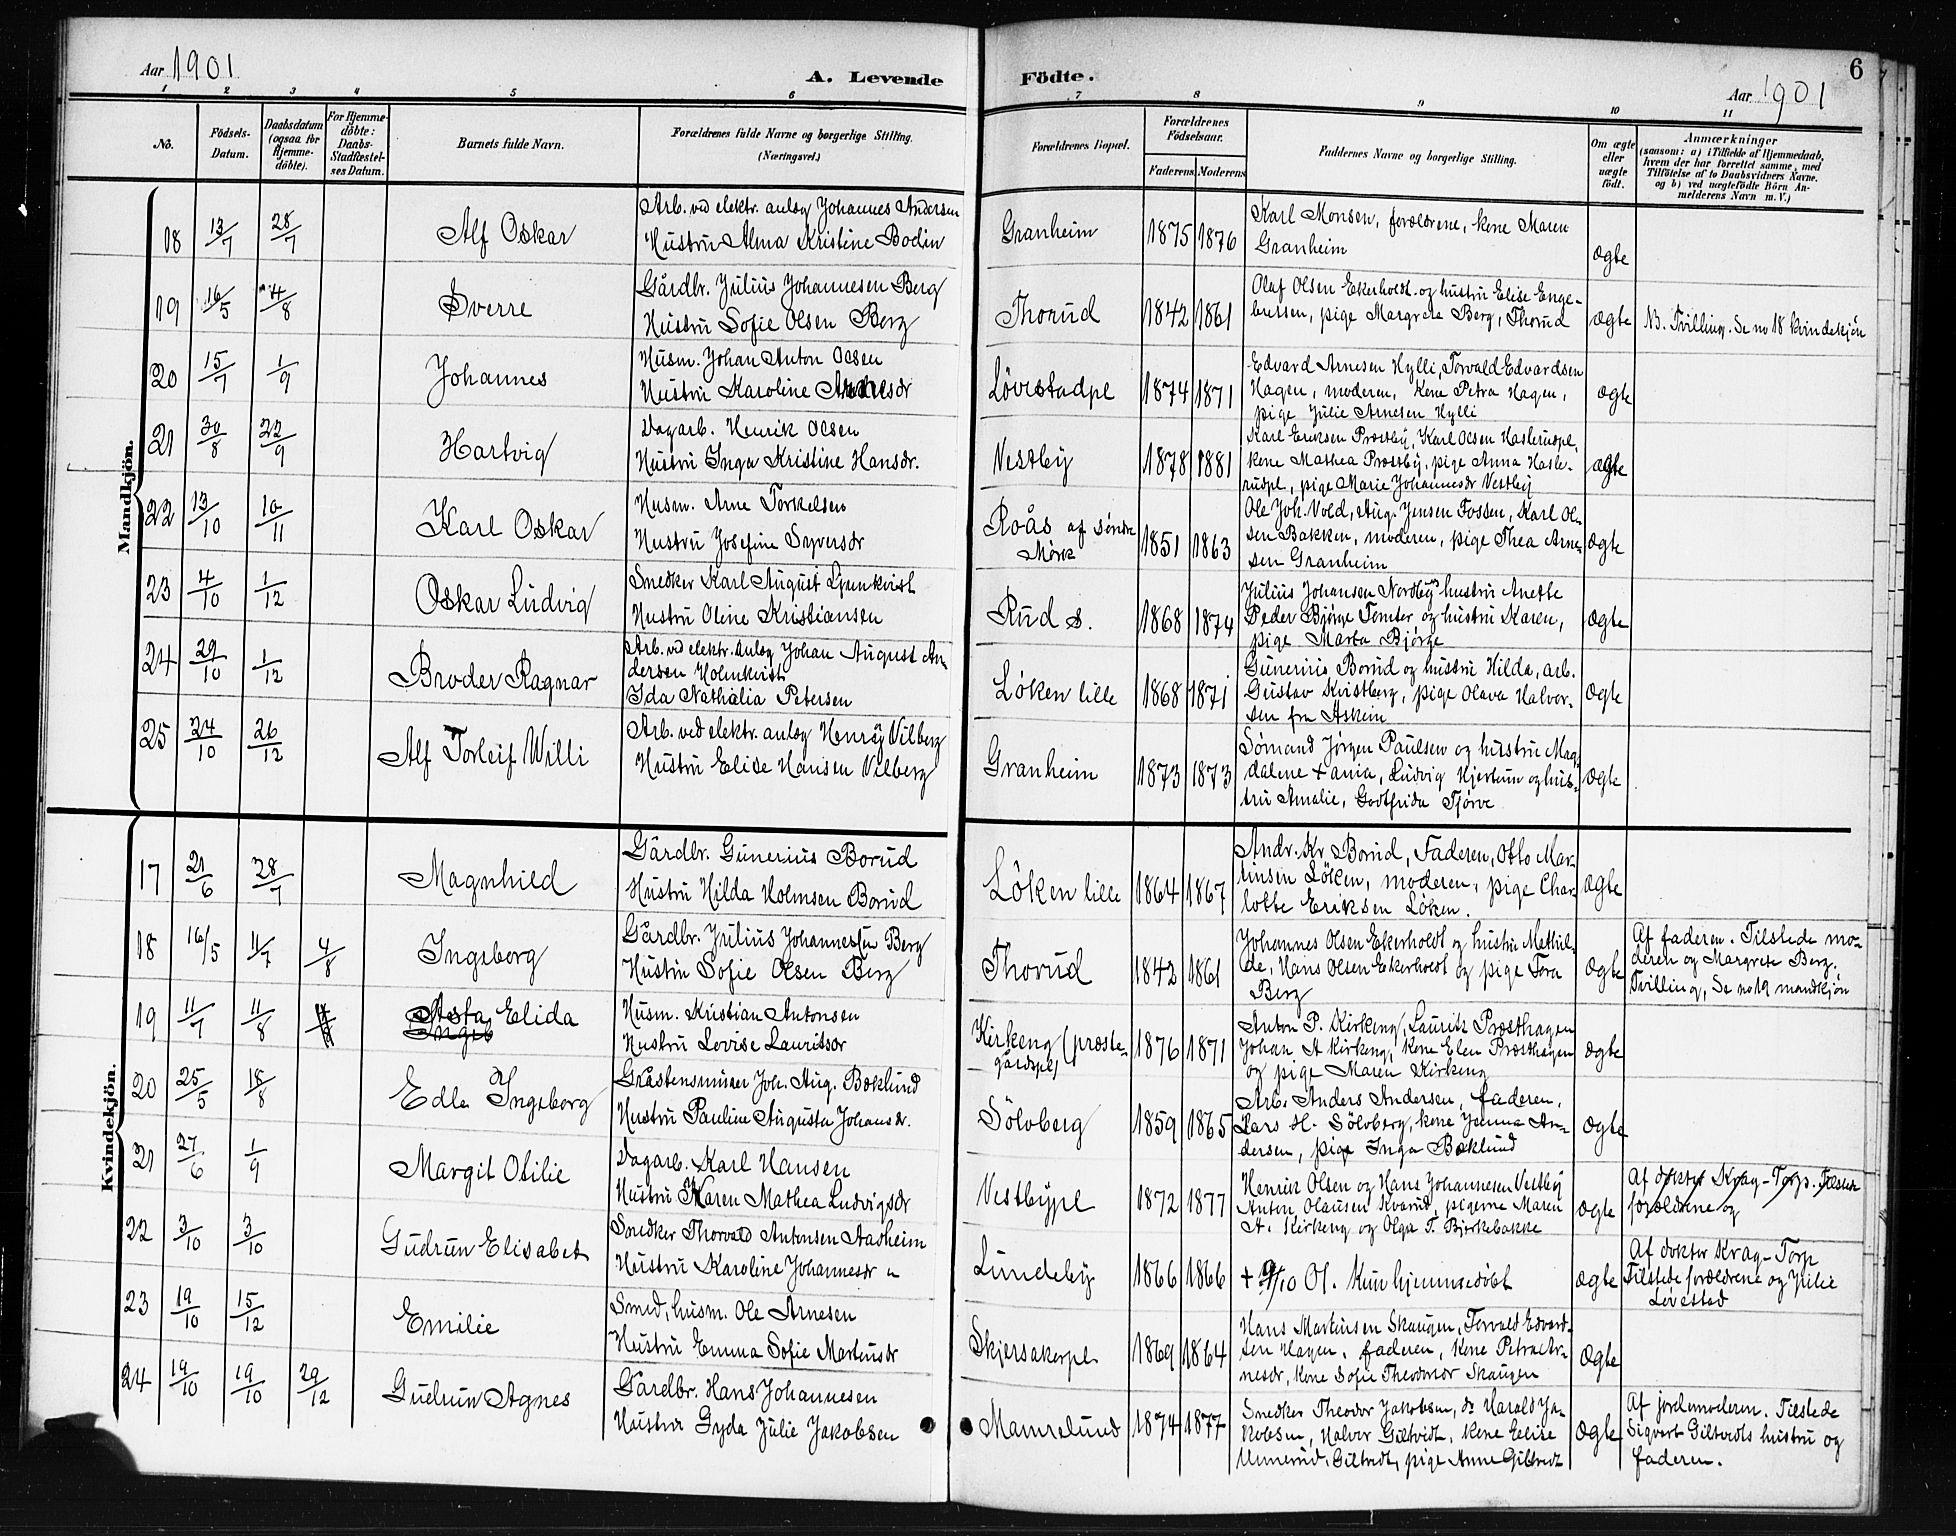 Aar 1901
A. Levende Födte.
6
Aar 1901
1 2 3 4 5 6 7 8 9 10 11
No.
Födsels-Datum.
Daabsdatum (ogsaa for Hjemme-döbte).
For Hjemme-döbte: Daabs-Stadfæstel-ses Datum.
Barnets fulde Navn.
Forældrenes fulde Navne og borgerlige Stilling. (Næringsvei.)
Forældrenes Bopæl.
Forældrenes Födselsaar.
Faderens. Moderens.
Faddernes Navne og borgerlige Stilling.
Om ægte eller uægte födt.
Anmærkninger
(saasom: a) i Tilfælde af Hjemmedaab, hvem der har forrettet samme, med Tilföielse af to Daabsvidners Navne. og b) ved uægtefödte Börn An-melderens Navn m. V.)
Mandkjön.
18 13/7 28/7 Alf Oskar
Arb. ved elektr. anlæg Johannes Andersen
Hustru Alma Kristine Bodin
Granheim 1875 1876
Karl Monsen, forældrene, kone Maren
Granheim
ægte
19 16/5 4/8 Sverre
Gårdbr. Julius Johannesen Berg
Hustru Sofie Olsen Berg
Thorud 1842 1861
Olaf Olsen Ekerholdt og hustru Elise Enge-
bretsen, pige Margrete Berg, Thorud
ægte
NB. Tvilling. Se no 18 kvindekjön
20 15/7 1/9 Johannes
Husm. Johan Anton Olsen
Hustru Karoline
Løvestadpl 1874 1871
Edvard Arnesen Hylli, Torvald Edvardsen
Hagen, moderen, kone Petra Hagen,
pige Julie Arnesen Hylli
ægte
21 30/8 22/9 Hartvig
Dagarb. Henrik Olsen
Hustru Inga Kristine Hansdr.
Vestby 1878 1881
Karl Eriksen Præstby, Karl Olsen Haslerudpl,
kone Mathea Præstby, pige Anna Hasle-
rudpl, pige Marie Johannesdr Vestby
ægte
22 13/10 10/11 Karl Oskar
Husm. Arne Torkelsen
Hustru Josefine Syversdr
Roås af søndre
Mørk 1851 1863
Ole Joh. Vold, Aug. Jensen Fossen, Karl Ol-
sen Bakken, moderen, pige Thea Arne-
sen Granheim
ægte
23 4/10 1/12 Oskar Ludvig
Snedker Karl August
Hustru Oline Kristiansen
Rud s. 1868 1874
Julius Johansen Nordby, hustru Anette
Peder Bjørge Tomter og hustru Karen,
pige Marta Bjørge
ægte
24 29/10 1/12 Broder Ragnar
Arb. ved elektr. anlæg Johan August An-
dersen Holmkvist
Ida Nathalia Petersen
Løken lille 1868 1871
Gunerius Borud og hustru Hilda, arb.
Gustav Kvistberg, pige Olava Halvor-
sen fra Askim
ægte
25 24/10 26/12 Alf Torleif Willi
Arb. ved elektr. anlæg Henry Vilberg
Hustru Elise Hansen Vilberg
Granheim 1873 1873
Sømand Jørgen Paulsen og hustru Mag-
dalene + ania, Ludvig Hjertum og hus-
tru Amalie, Godtfrida Tjörve
ægte
Kvindekjön.
17 21/6 28/7 Magnhild
Gårdbr. Gunerius Borud
Hustru Hilda Holmsen Borud
Løken lille 1864 1867
Andr. Kr Borud, Faderen, Otto Mar-
tinsen Løken, moderen, pige Char-
lotte Eriksen Løken.
ægte
18 16/5 11/7 4/8 Ingeborg
Gårdbr. Julius Johannesen Berg
Hustru Sofie Olsen Berg
Thorud 1842 1861
Johannes Olsen Ekerholdt og hustru Mathil-
de, Hans Olsen Ekerholdt og pige Tora
Berg
ægte
Af faderen. Tilstede mo-
deren og Margrete Berg.
Tvilling, Se no 19 mandkjön
19 11/7 11/8 Asta Elida
Ingeb
Husm. Kristian Antonsen
Hustru Lovise Lauritsdr
Kirkeng (præste-
gårdspl) 1876 1871
Anton P. Kirkeng, Lauritz Præsthagen
Johan A Kirkeng, kone Elen Præsthagen
og pige Maren Kirkeng
ægte
20 25/5 18/8 Edle Ingeborg
Gråstensminer Joh. Aug. Bæklund
Hustru Pauline Augusta Johansdr.
Sölvberg 1859 1865
Arb. Anders Andersen, faderen,
Lars H. Sölvberg, kone Jenna An-
dersen, pige Inga Bæklund
ægte
21 27/6 1/9 Margit Otilie
Dagarb. Karl Hansen
Hustru Karen Mathea Ludvigsdr
Vestbypl 1872 1877
Henrik Olsen og Hans Johannesen Vestby
Anton Olausen Kvarud, pigerne Maren
A. Kirkeng og Olga T. Bjerkebakke
ægte
Af doktor Krag-Torp. Tilstede
forældrene og
22 3/10 3/10 Gudrun Elisabet
Snedker Thorvald Antonsen Aasheim
Hustru Karoline Johannesdr "
Lundeby 1866 1866
+ 9/10 01. Kun hjemmedöbt
ægte
Af doktor Krag-Torp
Tilstede forældrene og Julie
Løvestad
23 19/10 15/12 Emilie
Smed, husm. Ole Arnesen
Hustru Emma Sofie Martinsdr
Skjersakerpl 1869 1864
Hans Martinsen Skaugen, Torvald Edvard-
sen Hagen, faderen, kone Petra Ar-
nesdr, kone Sofie Theodorsdr Skaugen
ægte
24 19/10 19/10 29/12 Gudrun Agnes
Gårdbr. Hans Johannesen
Hustru Gyda Julie Jakobsen
Mamrelund 1874 1877
Snedker Theodor Jakobsen, do Harald Ja-
kobsen, Halvor Giltvedt, kone Elise
Giltvedt, pige Anne Giltvedt
ægte
Af jordemoderen. Tilstede
Sigvart Giltvedts hustru og
faderen.